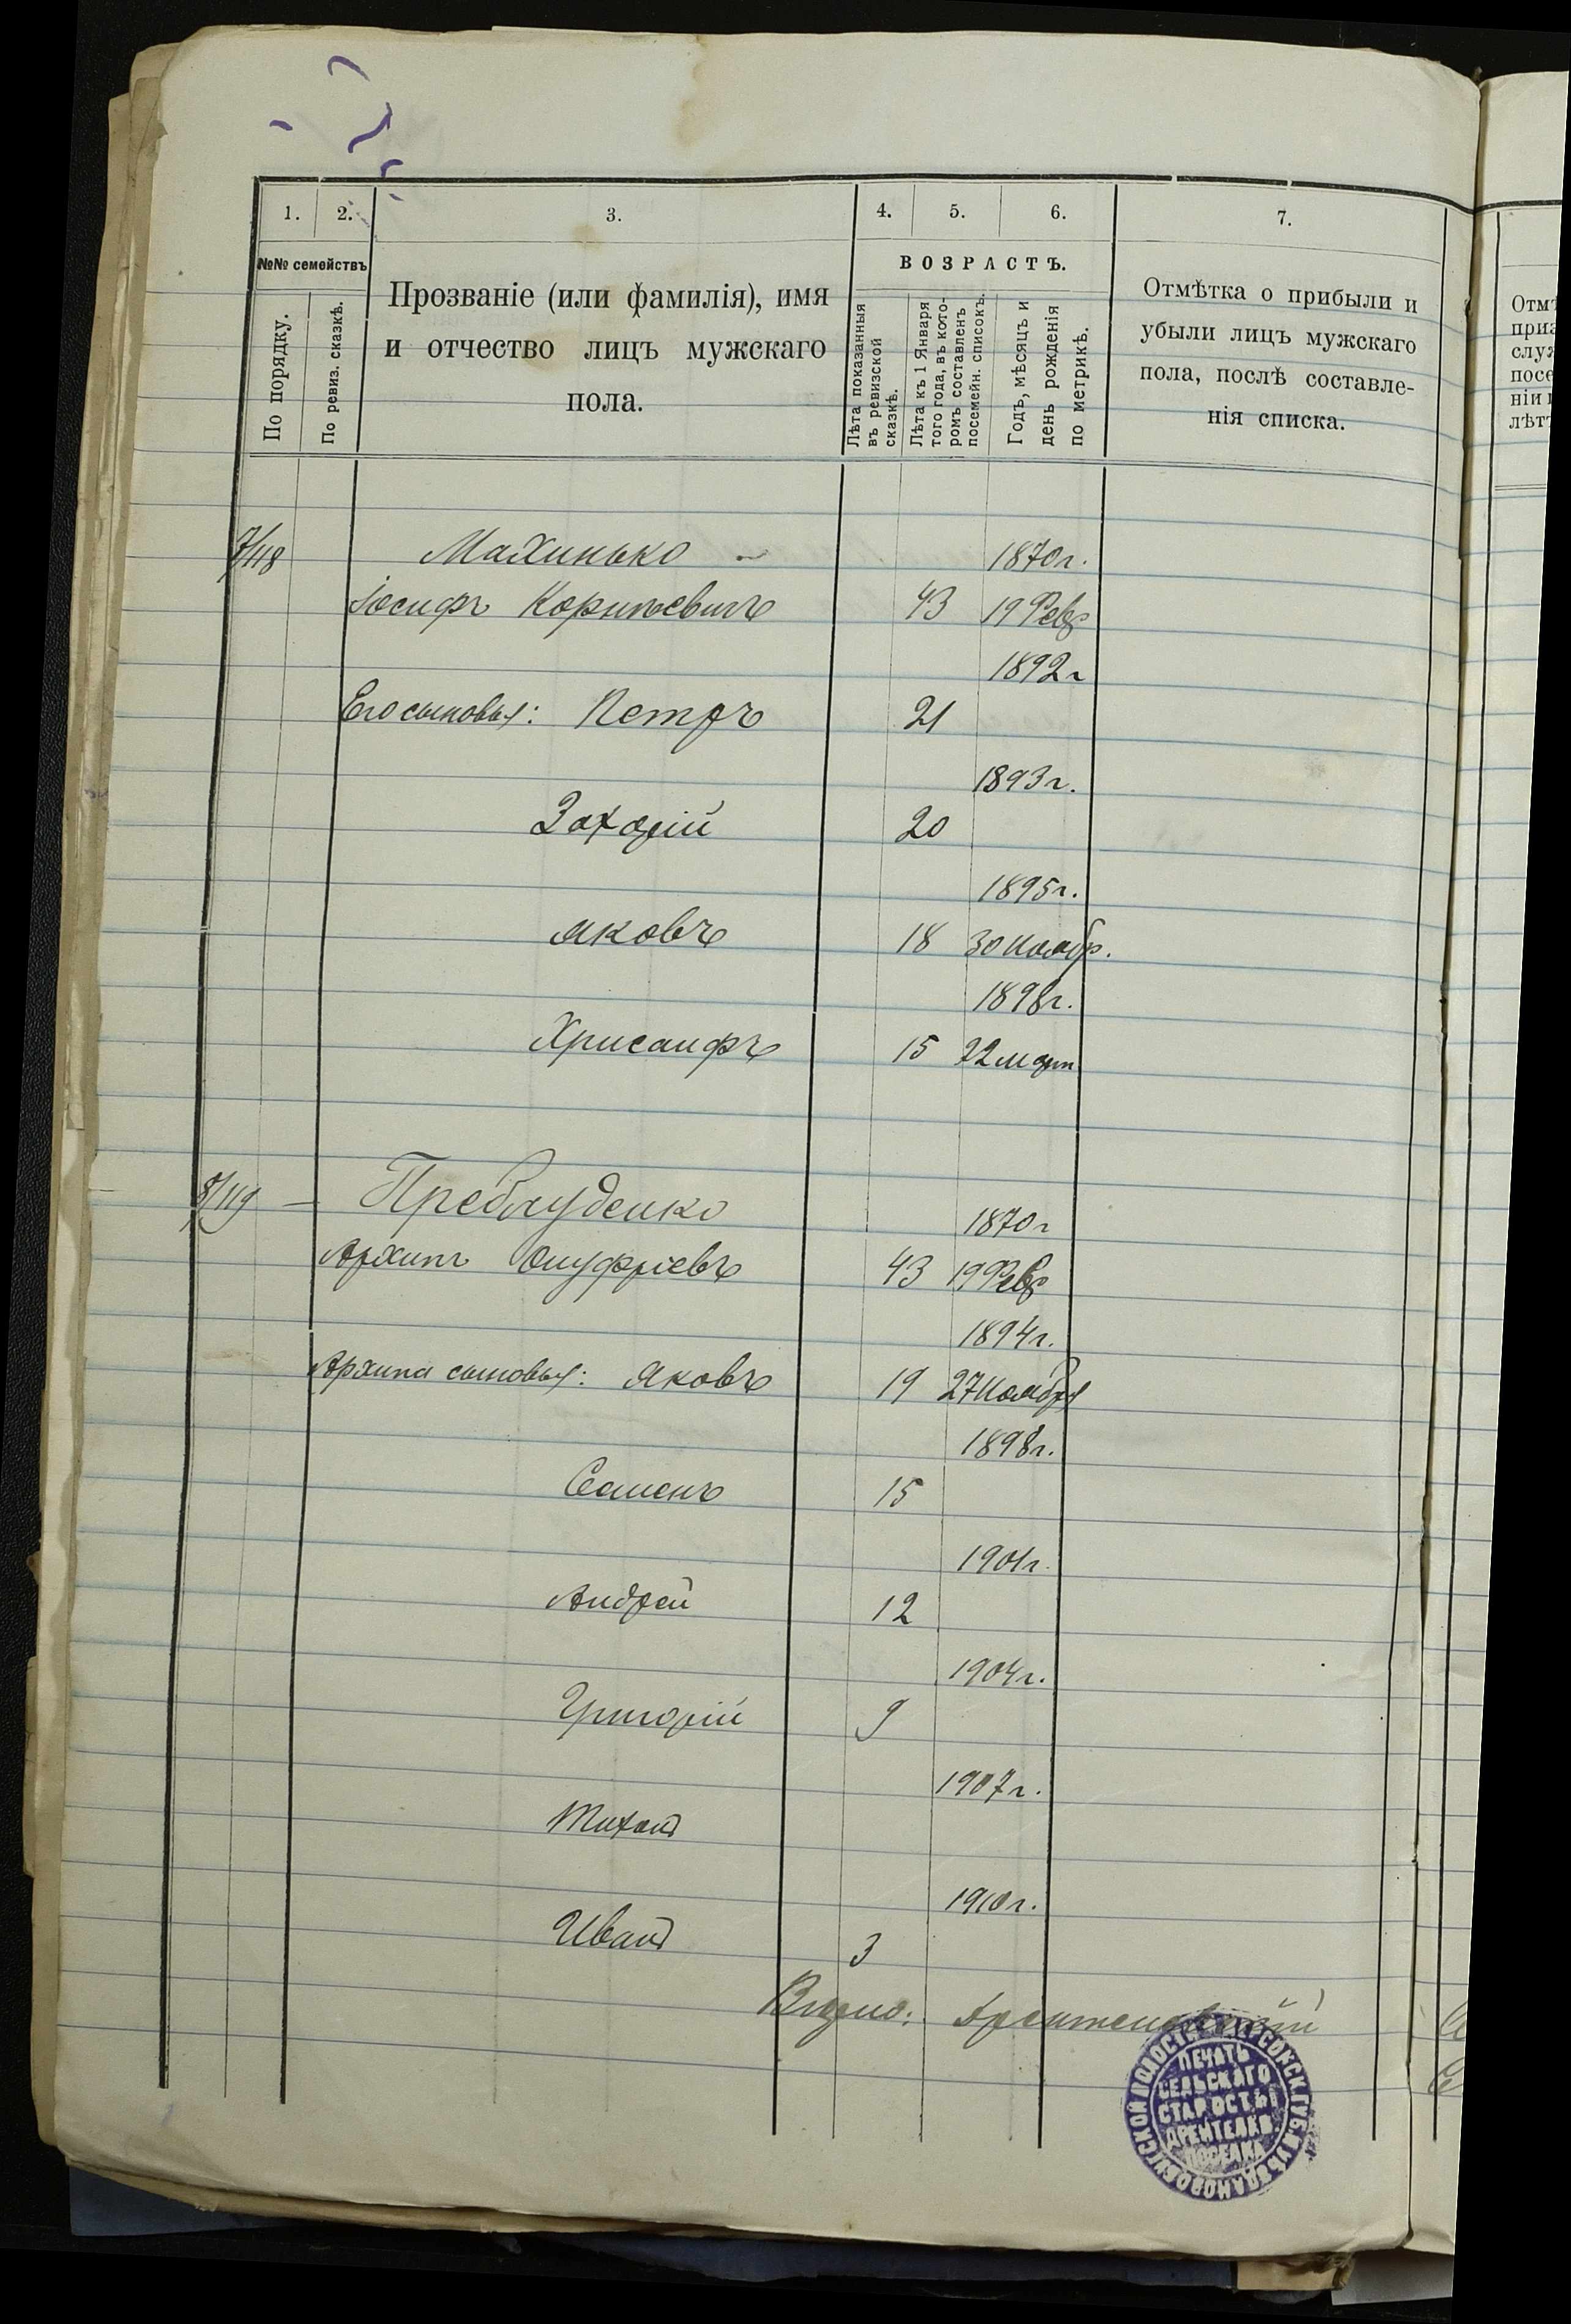 1. 2. 3. 4. 5. 6. 7.
№№ семействъ
По порядку.
По ревиз. сказкѣ.
Прозваніе (или фамилія), имя
и отчество лицъ мужскаго
пола.
ВОЗРАСТЪ.
Лѣта показанныя
въ ревизской
сказкѣ.
Лѣта къ 1 Января
того года, въ кото-
ромъ составленъ
посемейн. списокъ.
Годъ, мѣсяцъ и
день рожденія
по метрикѣ.
Отмѣтка о прибыли и
убыли лицъ мужскаго
пола, послѣ составле-
нія списка.
7/118 Махинько 1870г.
Іосифъ Корнѣевичъ 43 19 Февр
1892г
Его сыновья: Петръ 21
1893г.
Захарій 20
1895г.
Яковъ 18 30 Ноябр.
1898г.
Хрисанфъ 15 22 март
8/119 — Преблуденко 1870г
Архипъ Онуфріевъ 43 19 Февр
1894г.
Архипа сыновья: Яковъ 19 27 Ноября
1898г.
Семенъ 15
1901г.
Андрей 12
1904г.
Григорій 9
1907г.
Михаил
1910г.
Иван 3
ПЕЧАТЬ
СЕЛЬСКАГО
СТАРОСТЫ
ПОСЕЛКА
Отмѣ
приз
служ
посе
ніи и
лѣт